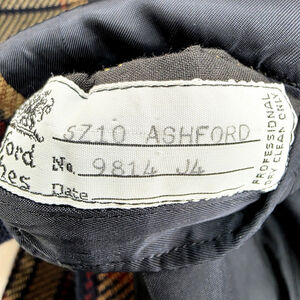 5710 ASHFORD
ford No. 9814 J4
hes Date
PROFESSIONAL
DRY CLEAN ONLY